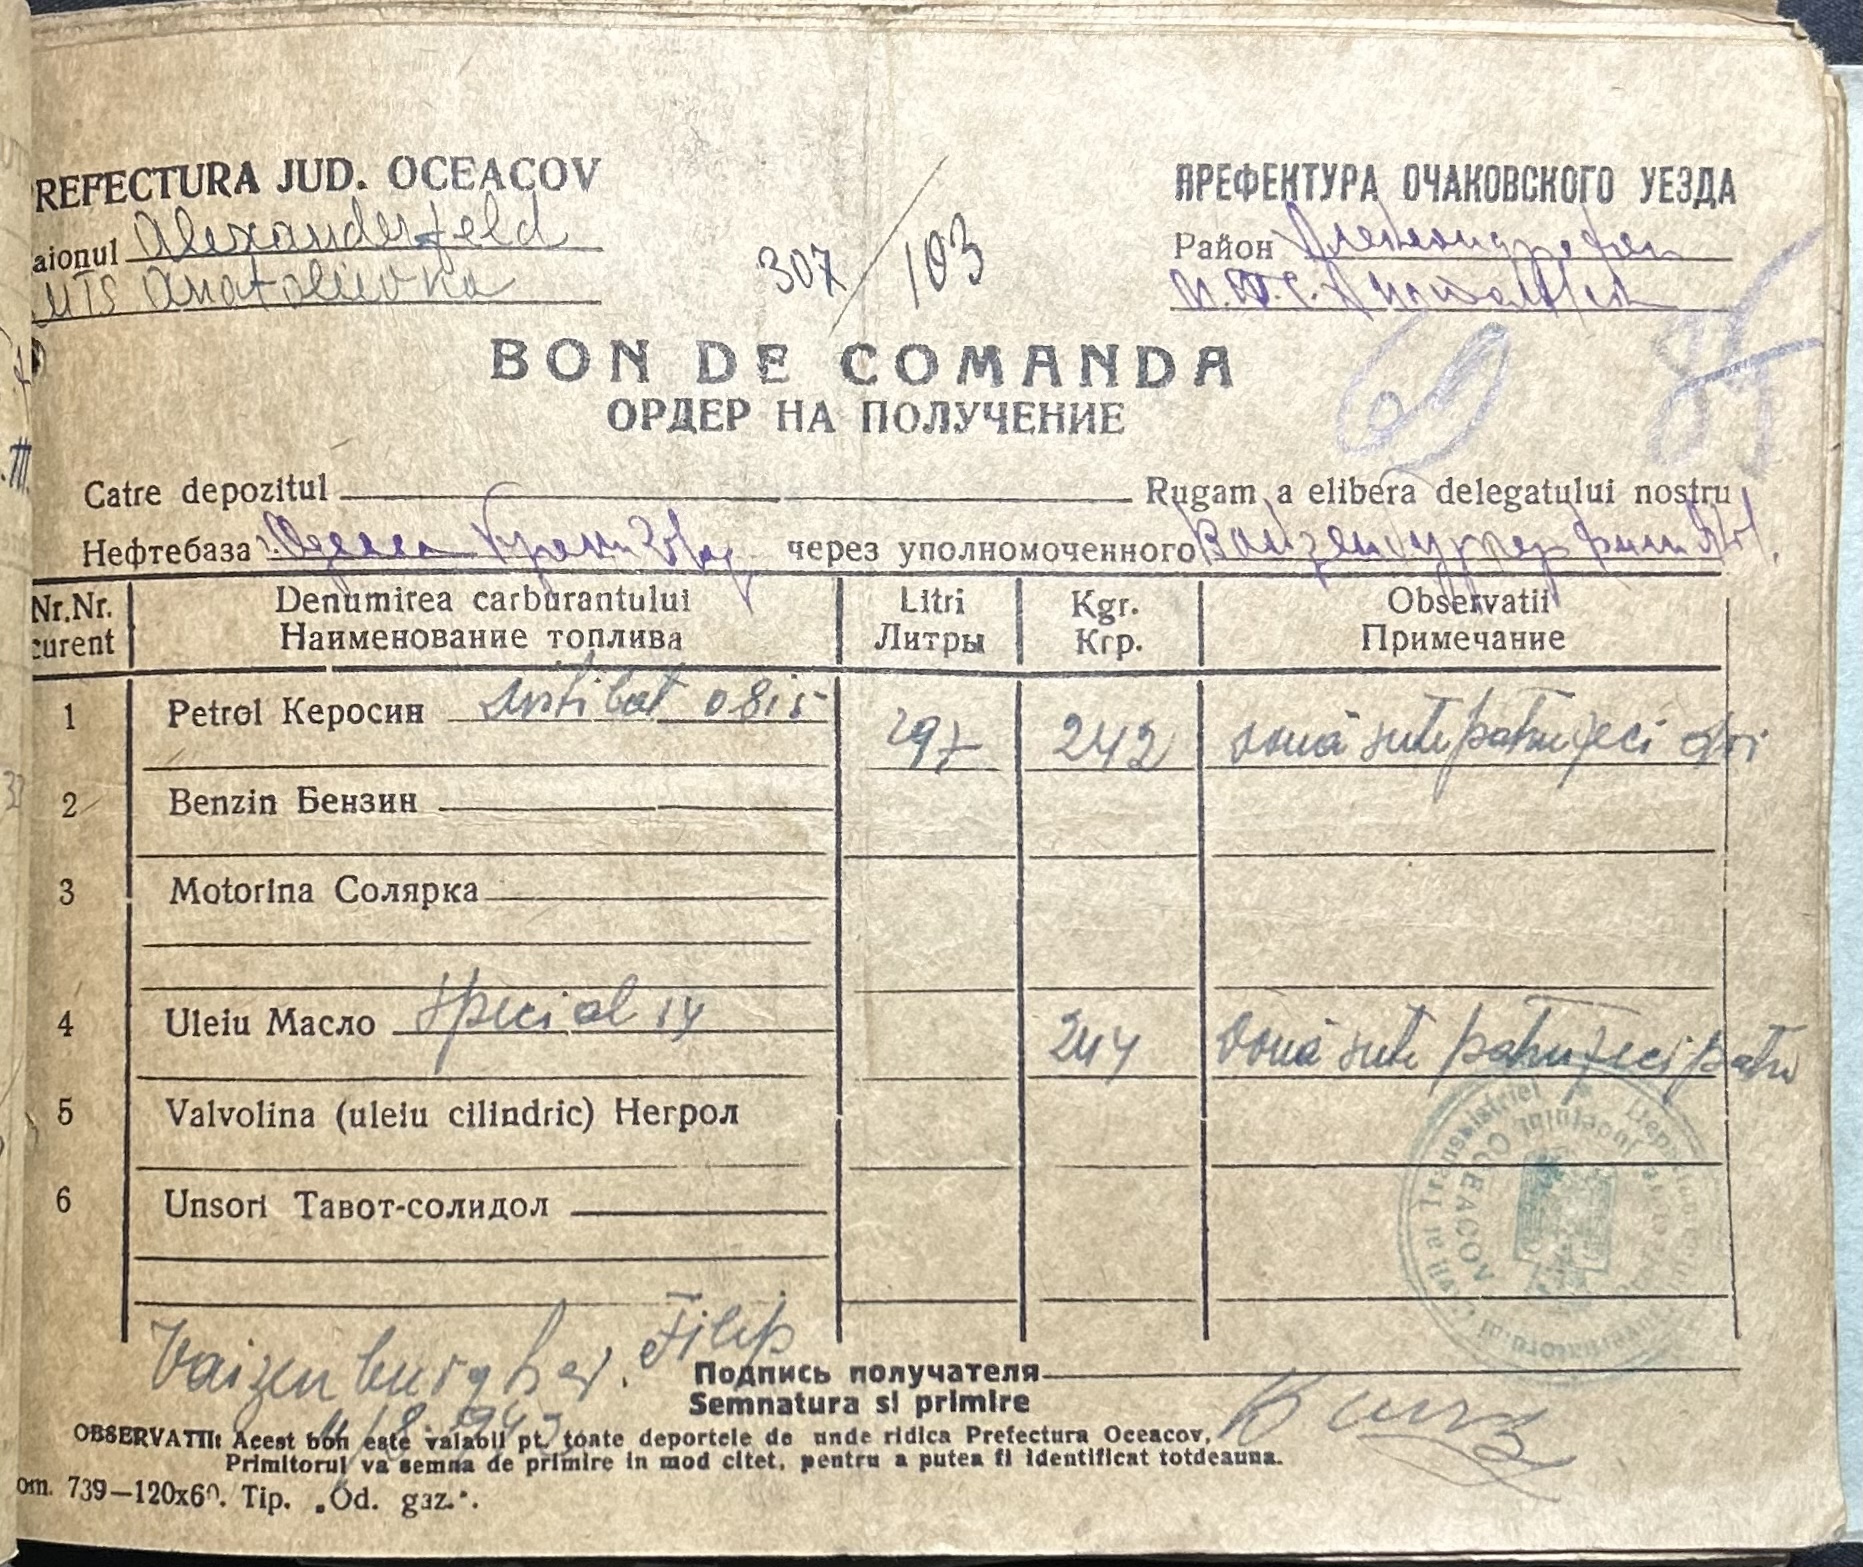 REFECTURA JUD. OCEACOV
aionul Alexanderfeld
MTS Anatolievka
307/103
ПРЕФЕКТУРА ОЧАКОВСКОГО УЕЗДА
Район
М.Т.С.
69
BON DE COMANDA
ОРДЕР НА ПОЛУЧЕНИЕ
Catre depozitul Rugam a elibera delegatului nostru
Нефтебаза г. Одесса через уполномоченного
Nr.Nr. curent
Denumirea carburantului
Наименование топлива
Litri
Литры
Kgr.
Кгр.
Observatii
Примечание
1 Petrol Керосин 0815 297 242 două sute patruzeci doi
2 Benzin Бензин
3 Motorina Солярка
4 Uleiu Масло special 14 244 două sute patruzeci patru
5 Valvolina (uleiu cilindric) Негрол
6 Unsori Тавот-солидол
Transnistriei
OCEACOV
Vaizenburgher. Filip
Подпись получателя
Semnatura si primire
OBSERVATII: Acest bon este valabil pt. toate deportele de unde ridica Prefectura Oceacov.
Primitorul va semna de primire in mod citet, pentru a putea fi identificat totdeauna.
om. 739—120x60. Tip. „Od. gaz.“.